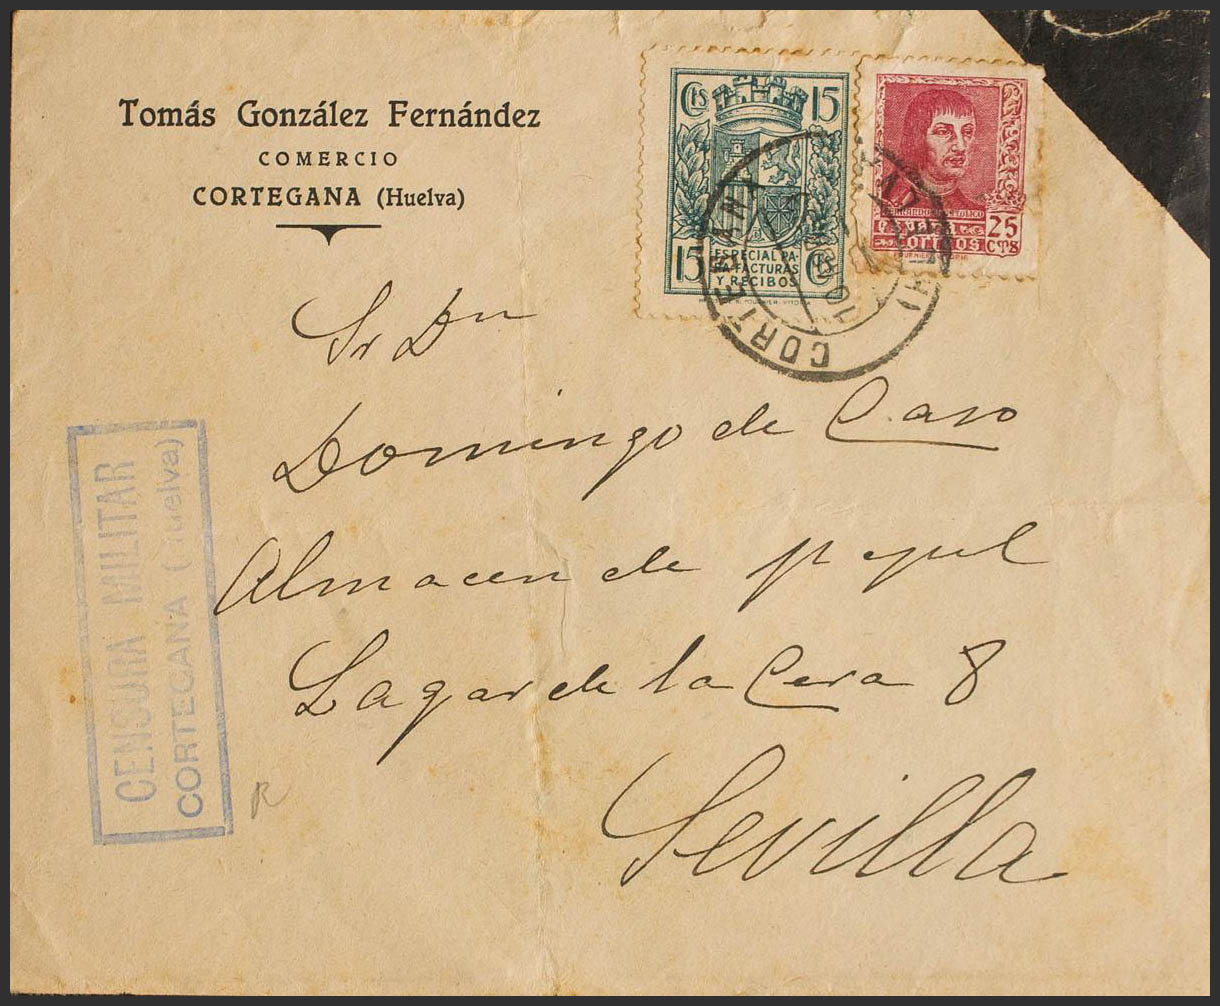 Tomás González Fernández
COMERCIO
CORTEGANA (Huelva)
Cts 15
15 Cts
ESPECIAL PA-
RA FACTURAS
Y RECIBOS
CORREOS
25
CTS
CORTEGANA (HUELVA)
Sr Dn
Domingo de Caso
Almacen de papel
Lagar de la Cera 8
Sevilla
CENSURA MILITAR
CORTEGANA (Huelva)
R